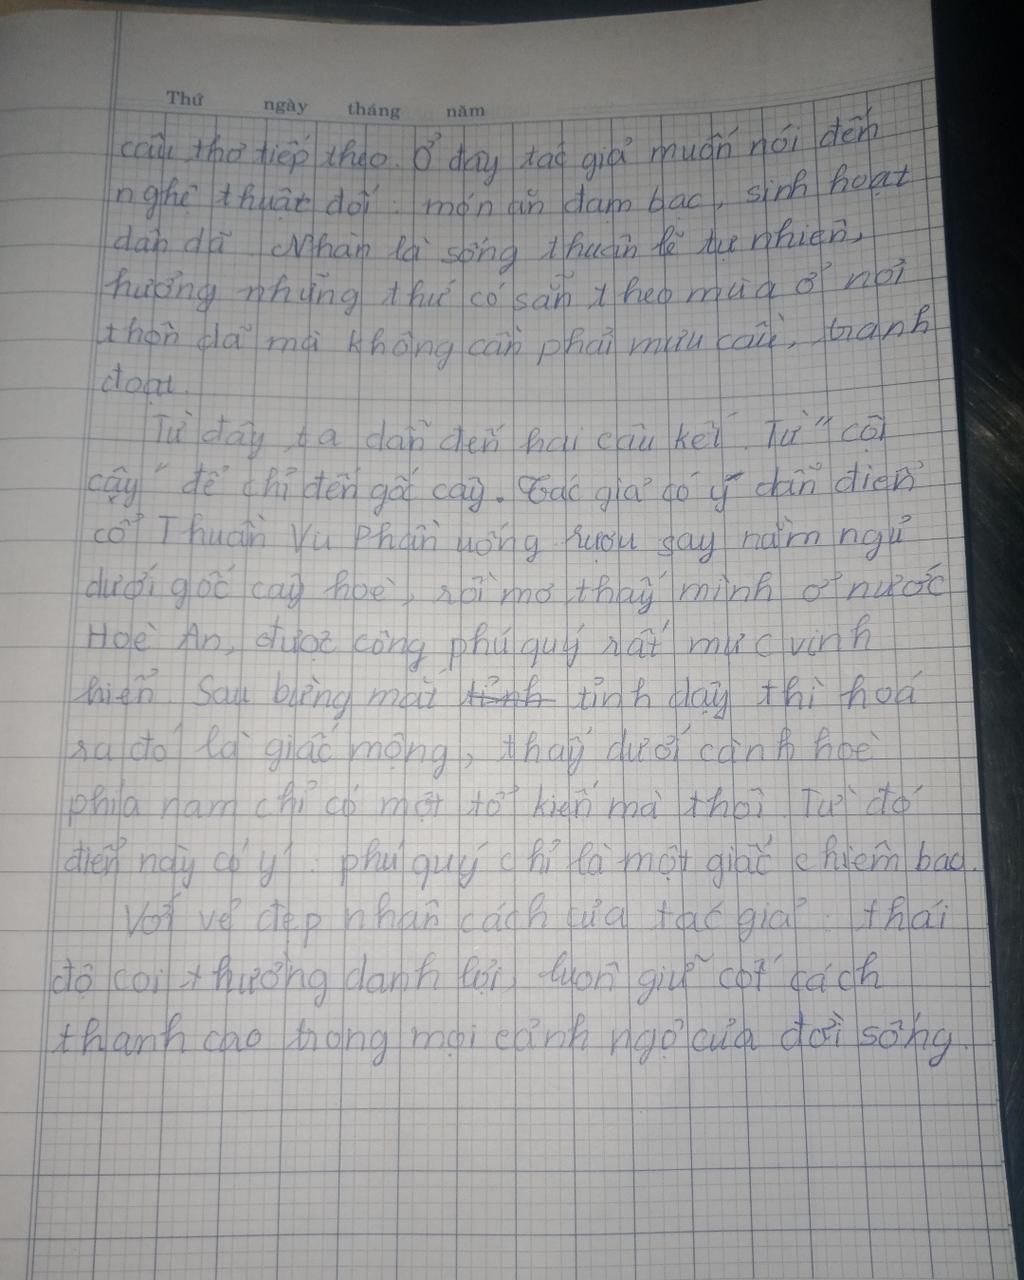 Thứ ngày tháng năm
câu thơ tiếp theo. Ở đây tác giả muốn nói đến
nghệ thuật đối: món ăn đạm bạc, sinh hoạt
dân dã. Nhàn là sống thuận lẽ tự nhiên,
hưởng những thứ có sẵn theo mùa ở nơi
thôn dã mà không cần phải mưu cầu, tranh
đoạt.
Từ đây ta dẫn đến hai câu kết. Từ "cội
cây" để chỉ đến gốc cây. Tác giả có ý dẫn điển
cố Thuần Vu Phần uống rượu say nằm ngủ
dưới gốc cây hoè, rồi mơ thấy mình ở nước
Hoè An, được công phú quý rất mực vinh
hiển. Sau bừng mắt tỉnh dậy thì hoá
ra đó là giấc mộng, thấy dưới cành hoè
phía nam chỉ có một tổ kiến mà thôi. Từ đó
điển này có ý: phú quý chỉ là một giấc chiêm bao.
Với vẻ đẹp nhân cách của tác giả: thái
độ coi thường danh lợi, luôn giữ cốt cách
thanh cao trong mọi cảnh ngộ của đời sống.